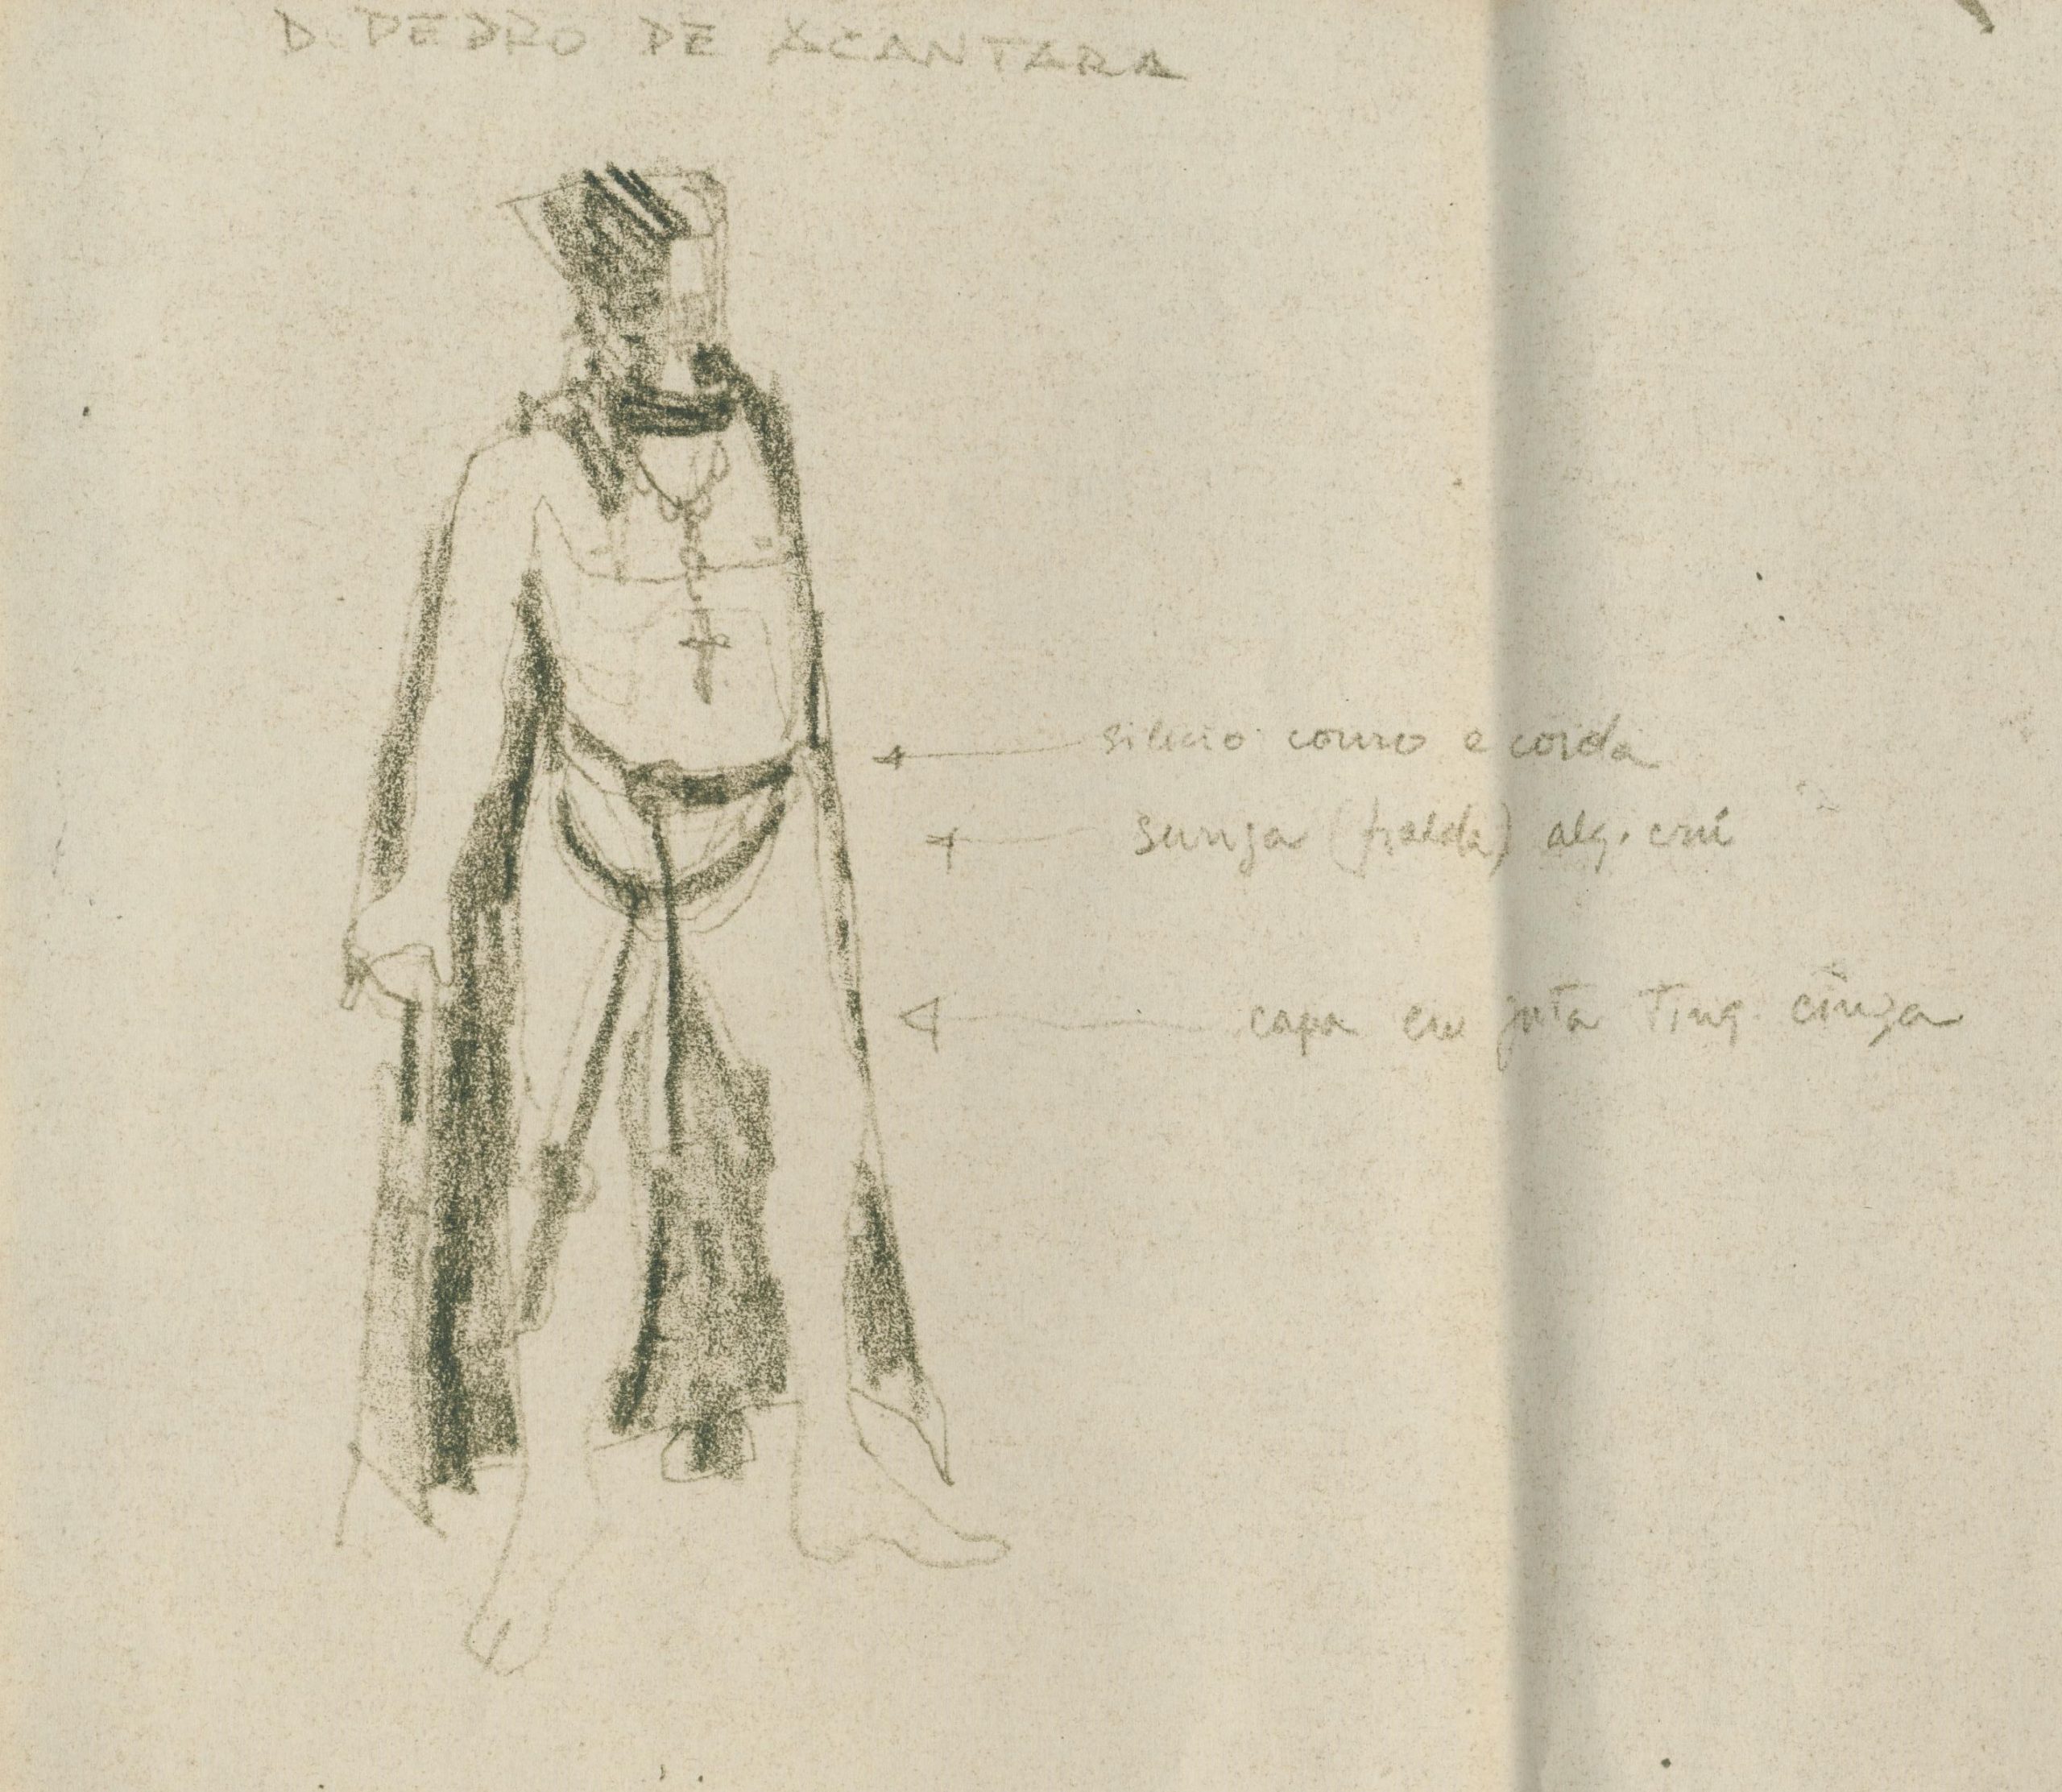 D. PEDRO DE ACANTARA
silicio couro e corda
sunga (fralda) alg. crú
capa em juta ting. cinza